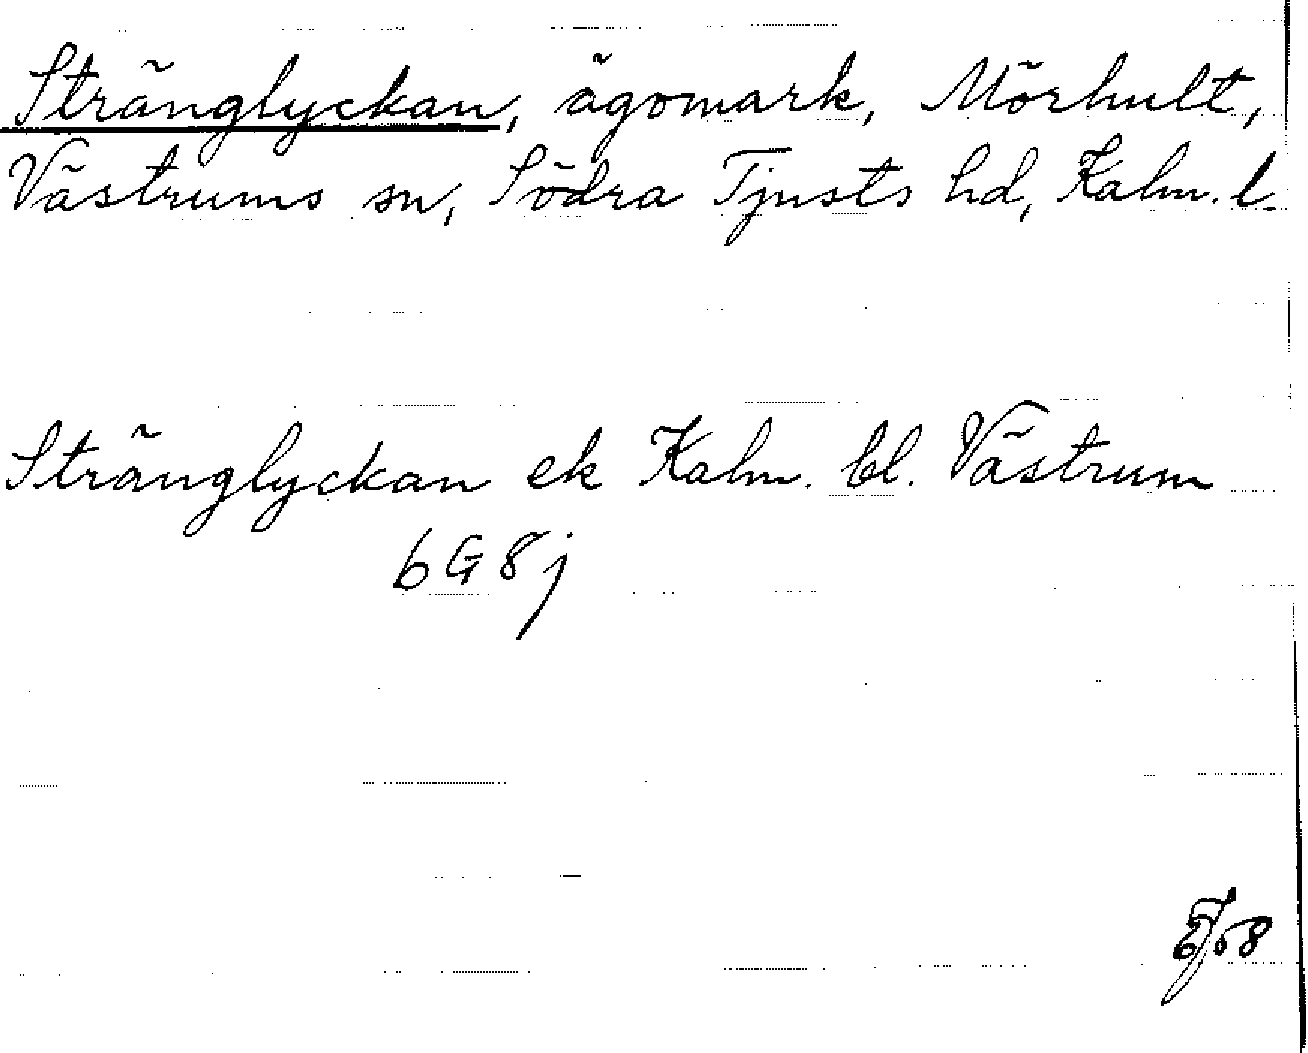 Stränglyckan, ägomark, Mörhult,
Västrums sn, Södra Tjusts hd, Kalm. l.
Stränglyckan ek Kalm. bl. Västrum
6G8j